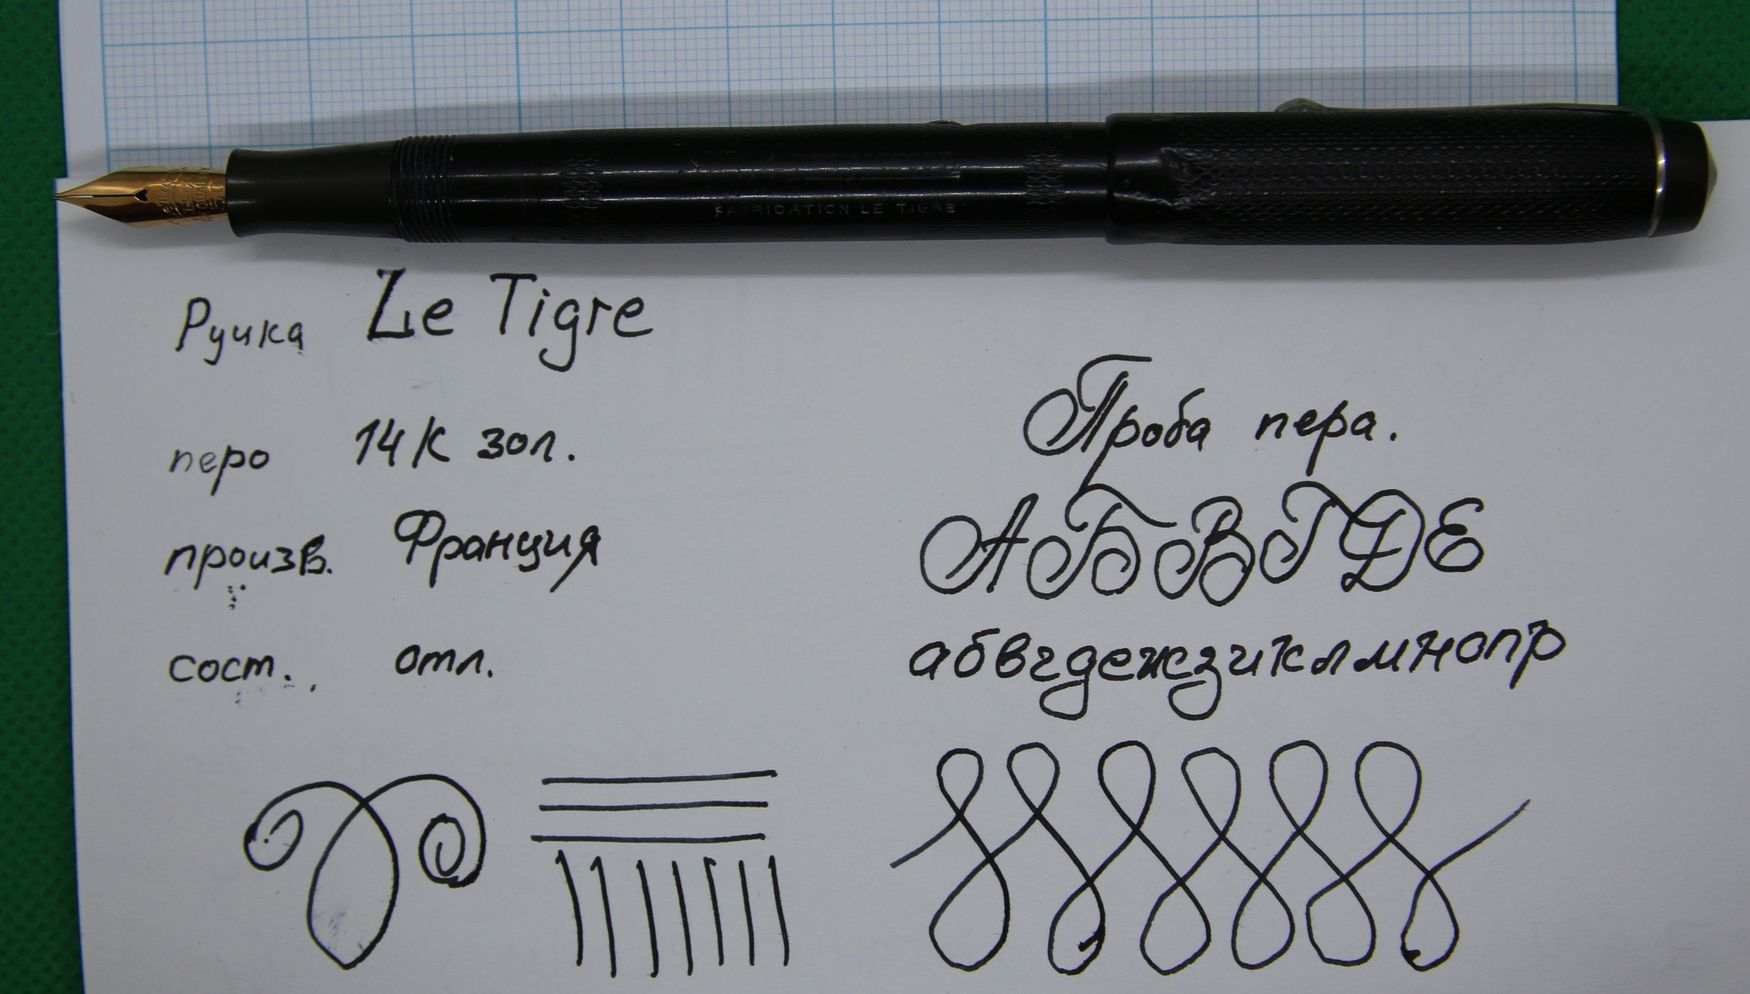 FABRICATION LE TIGRE
Ручка Le Tigre
перо 14К зол.
произв. Франция
сост. отл.
Проба пера.
АБВГДЕ
абвгдежзиклмнопр